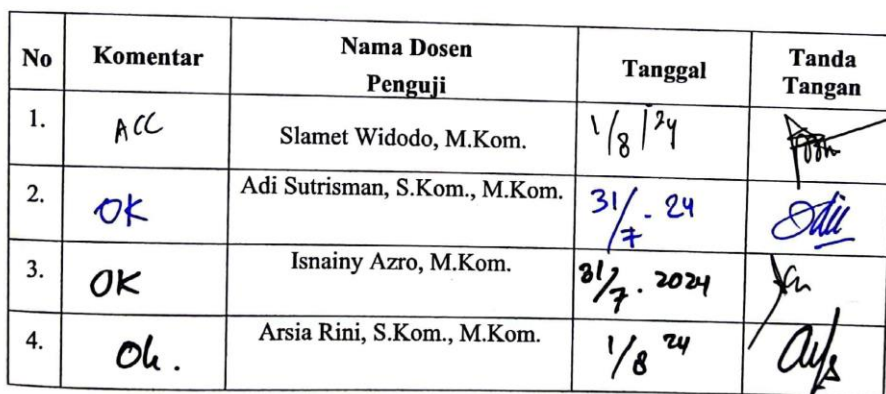 No Komentar Nama Dosen Penguji Tanggal Tanda Tangan
1. ACC Slamet Widodo, M.Kom. 1/8/24
2. OK Adi Sutrisman, S.Kom., M.Kom. 31/7-24
3. OK Isnainy Azro, M.Kom. 31/7.2024
4. Ok. Arsia Rini, S.Kom., M.Kom. 1/8 24